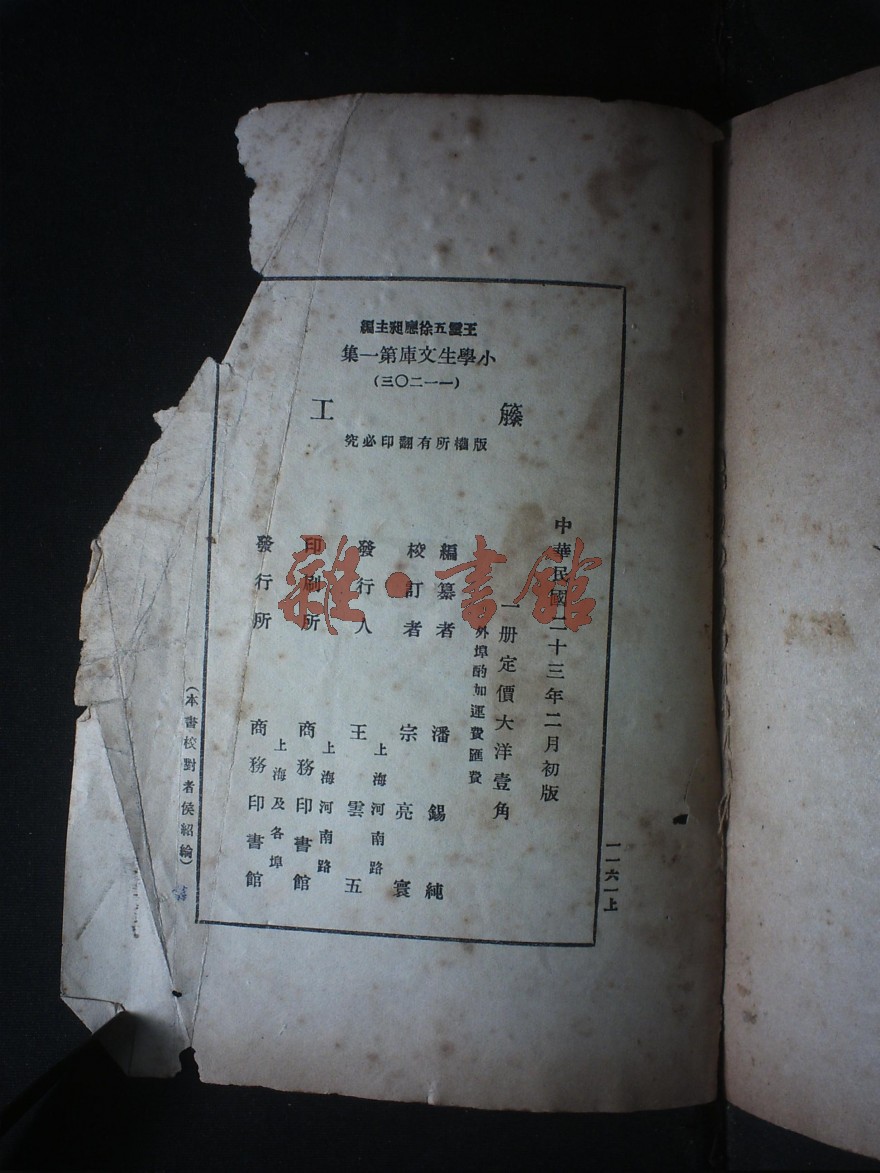 王雲五徐應昶主編
小學生文庫第一集
(一一二〇三)
籐工
版權所有翻印必究
中華民國二十三年二月初版
一册定價大洋壹角
外埠酌加運費匯費
編纂者 潘錫純
校訂者 宗亮寰
上海河南路
發行人 王雲五
上海河南路
印刷所 商務印書館
上海及各埠
發行所 商務印書館
(本書校對者侯紹綸)
一一六一上
雜·書館